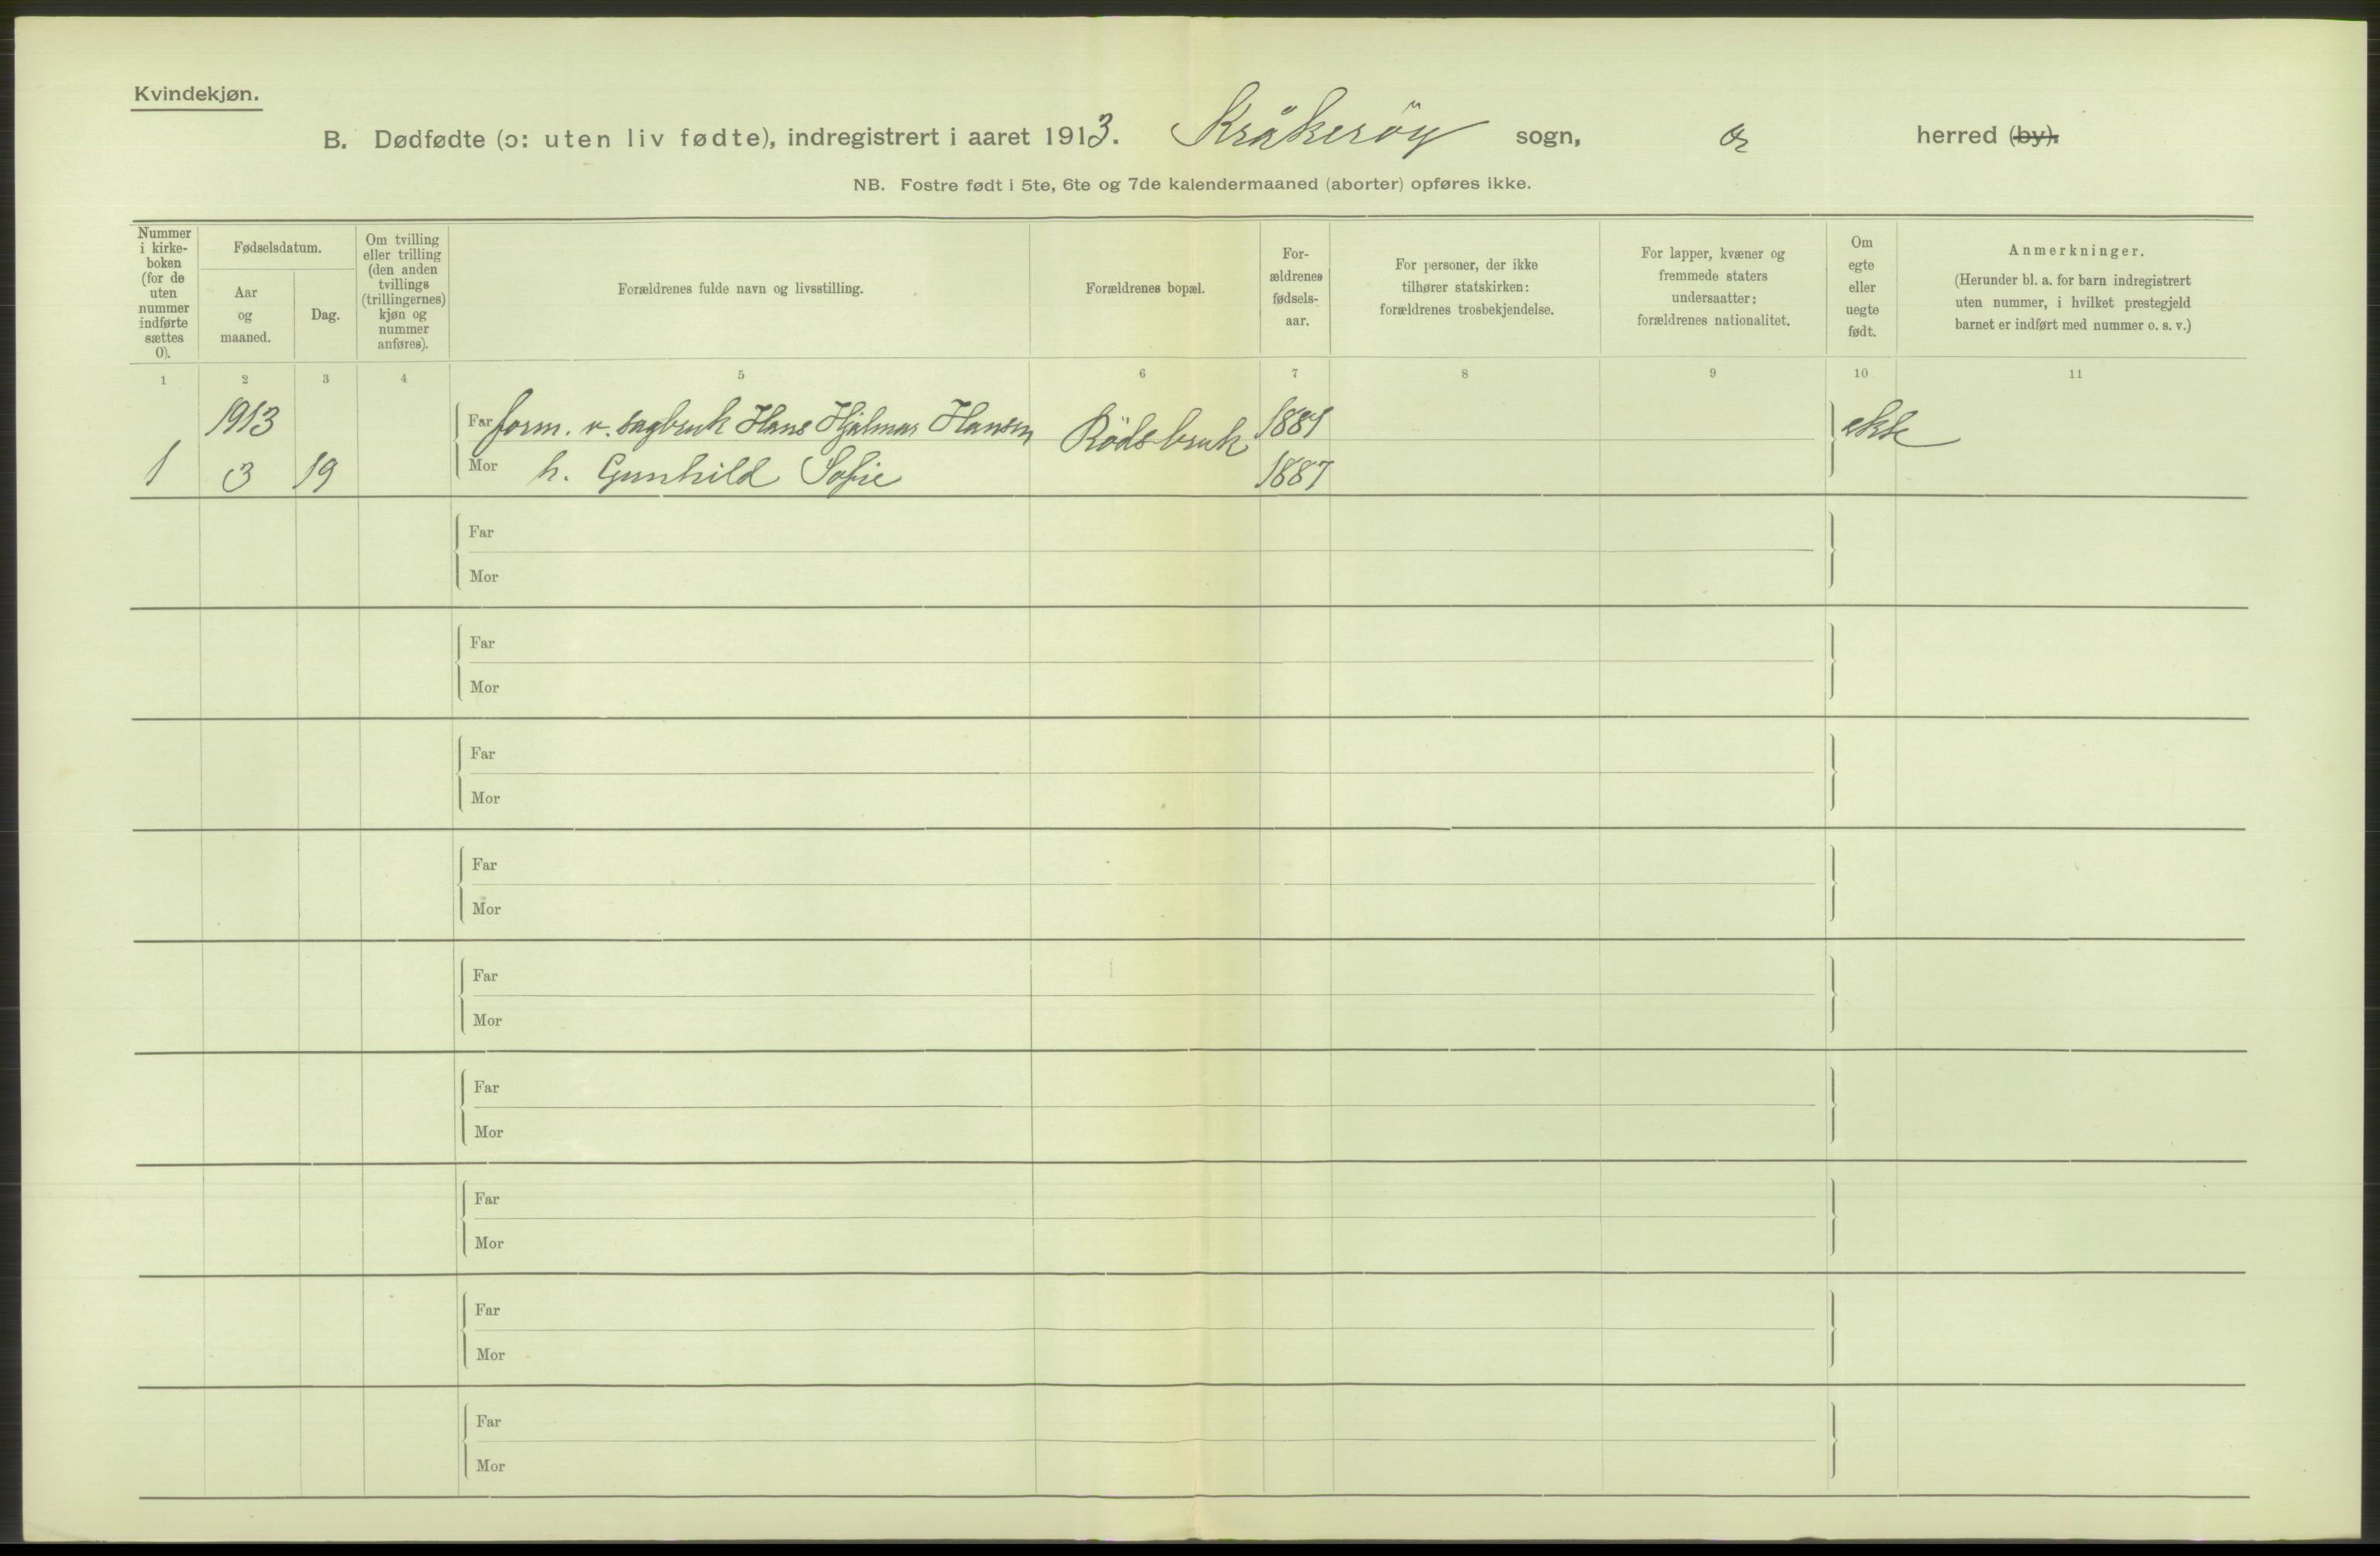 Kvindekjøn.
B. Dødfødte (ɔ: uten liv fødte), indregistrert i aaret 1913. Kråkerøy sogn, herred (by).
NB. Fostre født i 5te, 6te og 7de kalendermaaned (aborter) opføres ikke.
Nummer
i kirke-
boken
(for de
uten
nummer
indførte
sættes
0).
Fødselsdatum.
Aar
og
maaned.
Dag.
Om tvilling
eller trilling
(den anden
tvillings
(trillingernes)
kjøn og
nummer
anføres).
Forældrenes fulde navn og livsstilling.
Forældrenes bopæl.
For-
ældrenes
fødsels-
aar.
For personer, der ikke
tilhører statskirken:
forældrenes trosbekjendelse.
For lapper, kvæner og
fremmede staters
undersaatter:
forældrenes nationalitet.
Om
egte
eller
uegte
født.
Anmerkninger.
(Herunder bl. a. for barn indregistrert
uten nummer, i hvilket prestegjeld
barnet er indført med nummer o. s. v.)
1 2 3 4 5 6 7 8 9 10 11
1913 Far form. v. sagbruk Hans Hjalmar Hansen Röds bruk 1881 ekte
1 3 19 Mor h. Gunhild Sofie 1887
Far
Mor
Far
Mor
Far
Mor
Far
Mor
Far
Mor
Far
Mor
Far
Mor
Far
Mor
Far
Mor